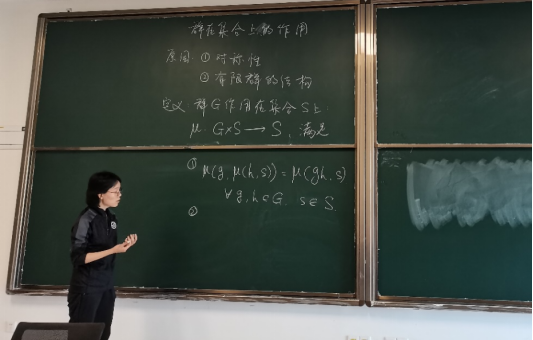 群在集合上的作用
原因: ① 对称性
② 有限群的结构
定义 群G作用在集合S上
μ: G×S → S, 满足
① μ(g, μ(h,s)) = μ(gh, s)
∀ g,h∈G, s∈S.
②